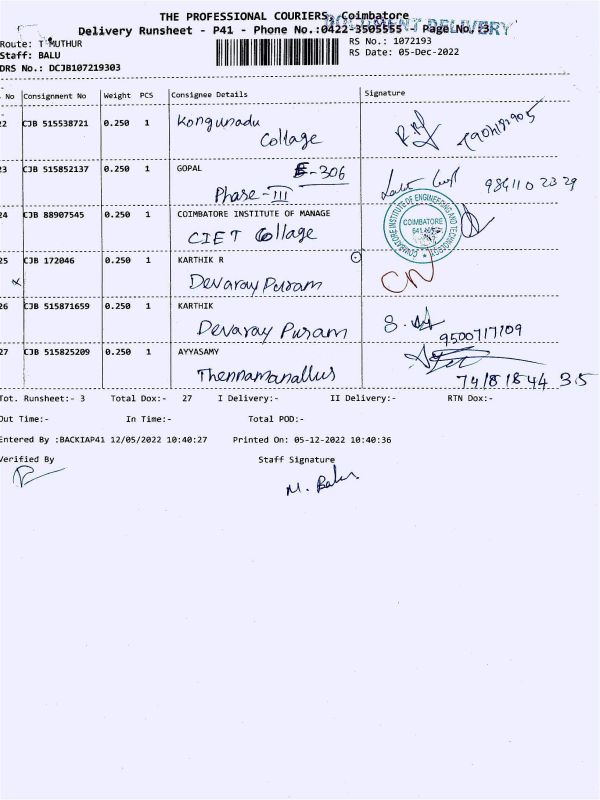 THE PROFESSIONAL COURIERS, Coimbatore
DOCUMENT DELIVERY
Delivery Runsheet - P41 - Phone No.:0422-3505555 - Page No.:3
Route: T MUTHUR
RS No.: 1072193
Staff: BALU
RS Date: 05-Dec-2022
DRS No.: DCJB107219303
No Consignment No Weight PCS Consignee Details Signature
22 CJB 515538721 0.250 1 Kongunadu
Collage
23 CJB 515852137 0.250 1 GOPAL E-306
Phase-III
24 CJB 88907545 0.250 1 COIMBATORE INSTITUTE OF MANAGE
CIET Collage
COIMBATORE INSTITUTE OF ENGINEERING AND TECHNOLOGY
COIMBATORE
25 CJB 172046 0.250 1 KARTHIK R
Devaray Puram
CN
26 CJB 515871659 0.250 1 KARTHIK
Devaray Puram
9500717109
27 CJB 515825209 0.250 1 AYYASAMY
Thennamanallus
Tot. Runsheet:- 3 Total Dox:- 27 I Delivery:- II Delivery:- RTN Dox:-
Out Time:- In Time:- Total POD:-
Entered By :BACKIAP41 12/05/2022 10:40:27 Printed On: 05-12-2022 10:40:36
Verified By Staff Signature
M. Balu